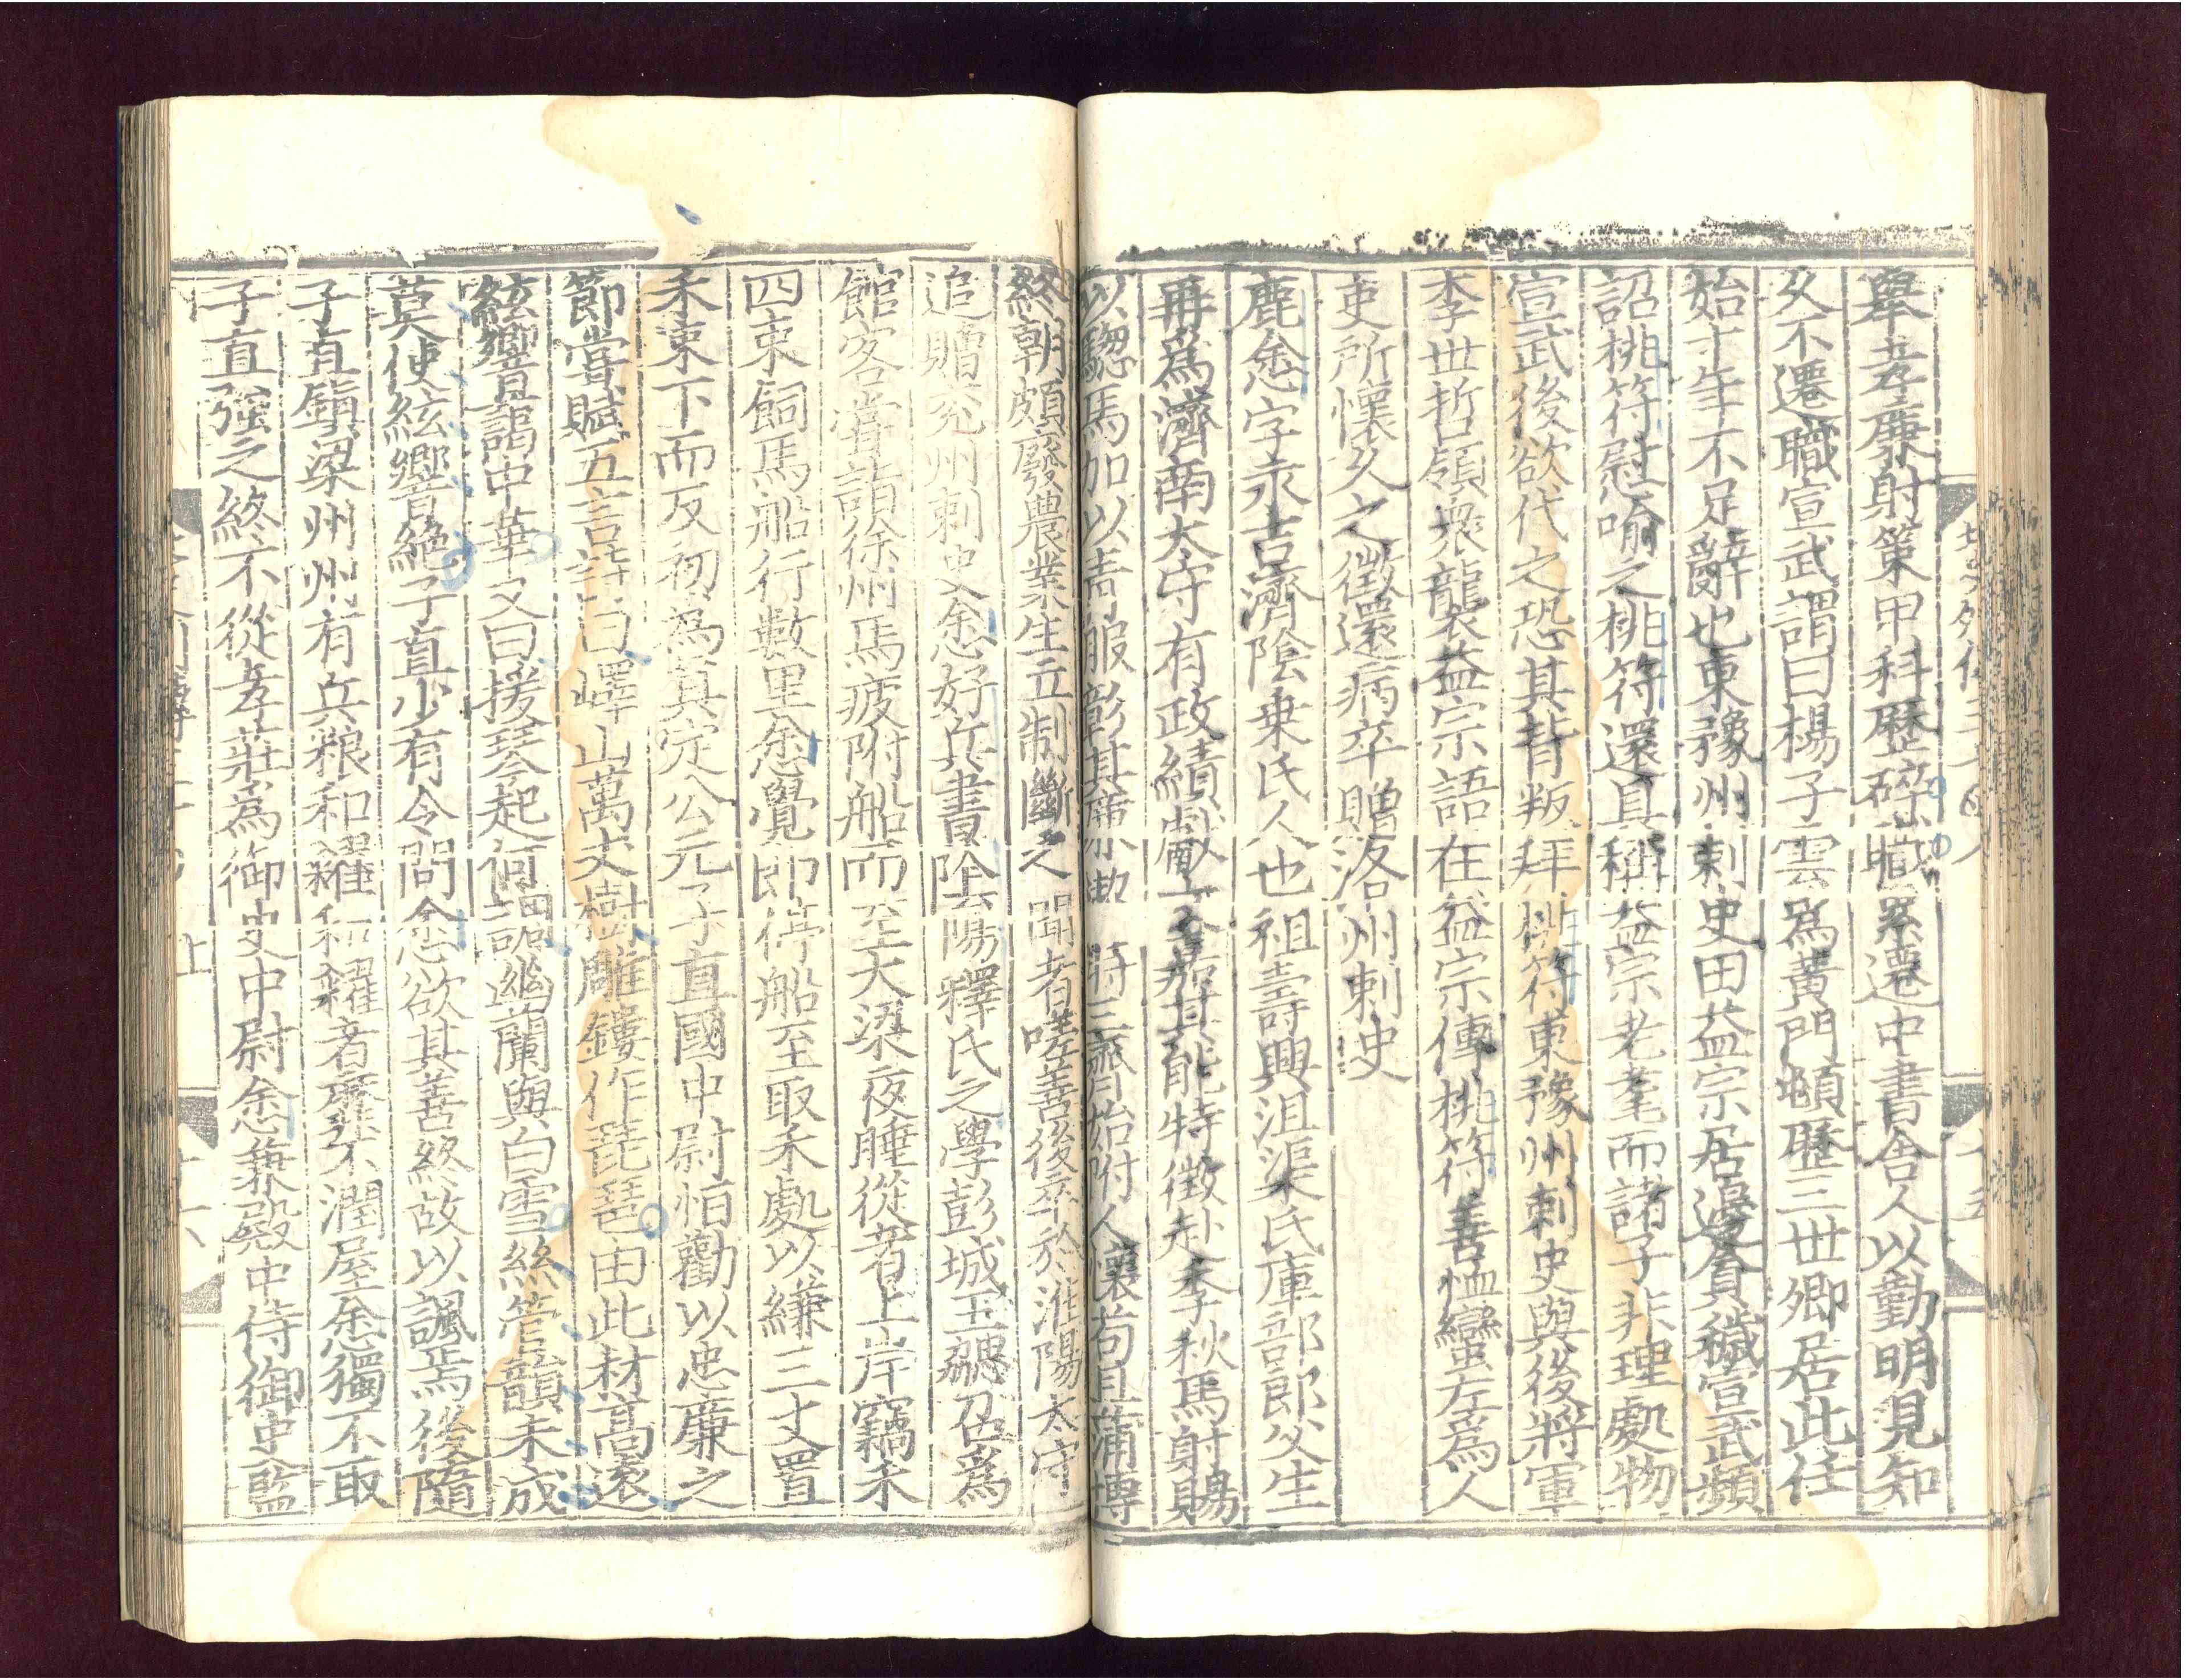 舉孝廉射策甲科歷碎職累遷中書舍人以勤明見知
久不遷職宣武謂曰楊子雲爲黃門頓歷三世卿居此任
始十年不足辭也東豫州刺史田益宗居邊貪穢宣武頻
詔桃符慰喻之桃符還具稱益宗老耄而諸子非理處物
宣武後欲代之恐其背叛拜桃符東豫州刺史與後將軍
李世哲領衆襲益宗語在益宗傳桃符善恤蠻左爲人
吏所懷久之徵還病卒贈洛州刺史
鹿悆字永吉濟陰乘氏人也祖壽興沮渠氏庫部郎父生
再爲濟南太守有政績獻文嘉其能特徵赴季秋馬射賜
以驄馬加以青服彰其廉 時三齊始附人懷苟且蒲博
終朝頗廢農業生立制斷之聞者嗟善後卒於淮陽太守
追贈兗州刺史悆好兵書陰陽釋氏之學彭城王勰召爲
館客嘗詣徐州馬疲附船而至大梁夜睡從者上岸竊禾
四束飼馬船行數里悆覺即停船至取禾處以縑三丈置
禾束下而反初為真定公元子直國中尉恒勸以忠廉之
節嘗賦五言詩曰嶧山萬丈樹雕鏤作琵琶由此材高遠
絃響藹中華又曰援琴起何調幽蘭與白雪絲管韻未成
莫使絃響絕子直少有令問悆欲其善終故以諷焉後隨
子直鎮梁州州有兵粮和糴和糴者靡不潤屋悆獨不取
子直强之終不從孝莊為御史中尉悆兼殿中侍御史監